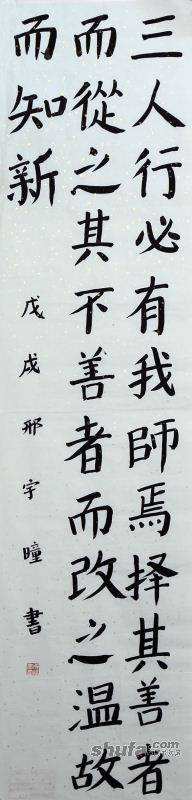 三人行必有我師焉择其善者
而從之其不善者而改之温故
而知新
戊戌邢宇曈書
shufa.com